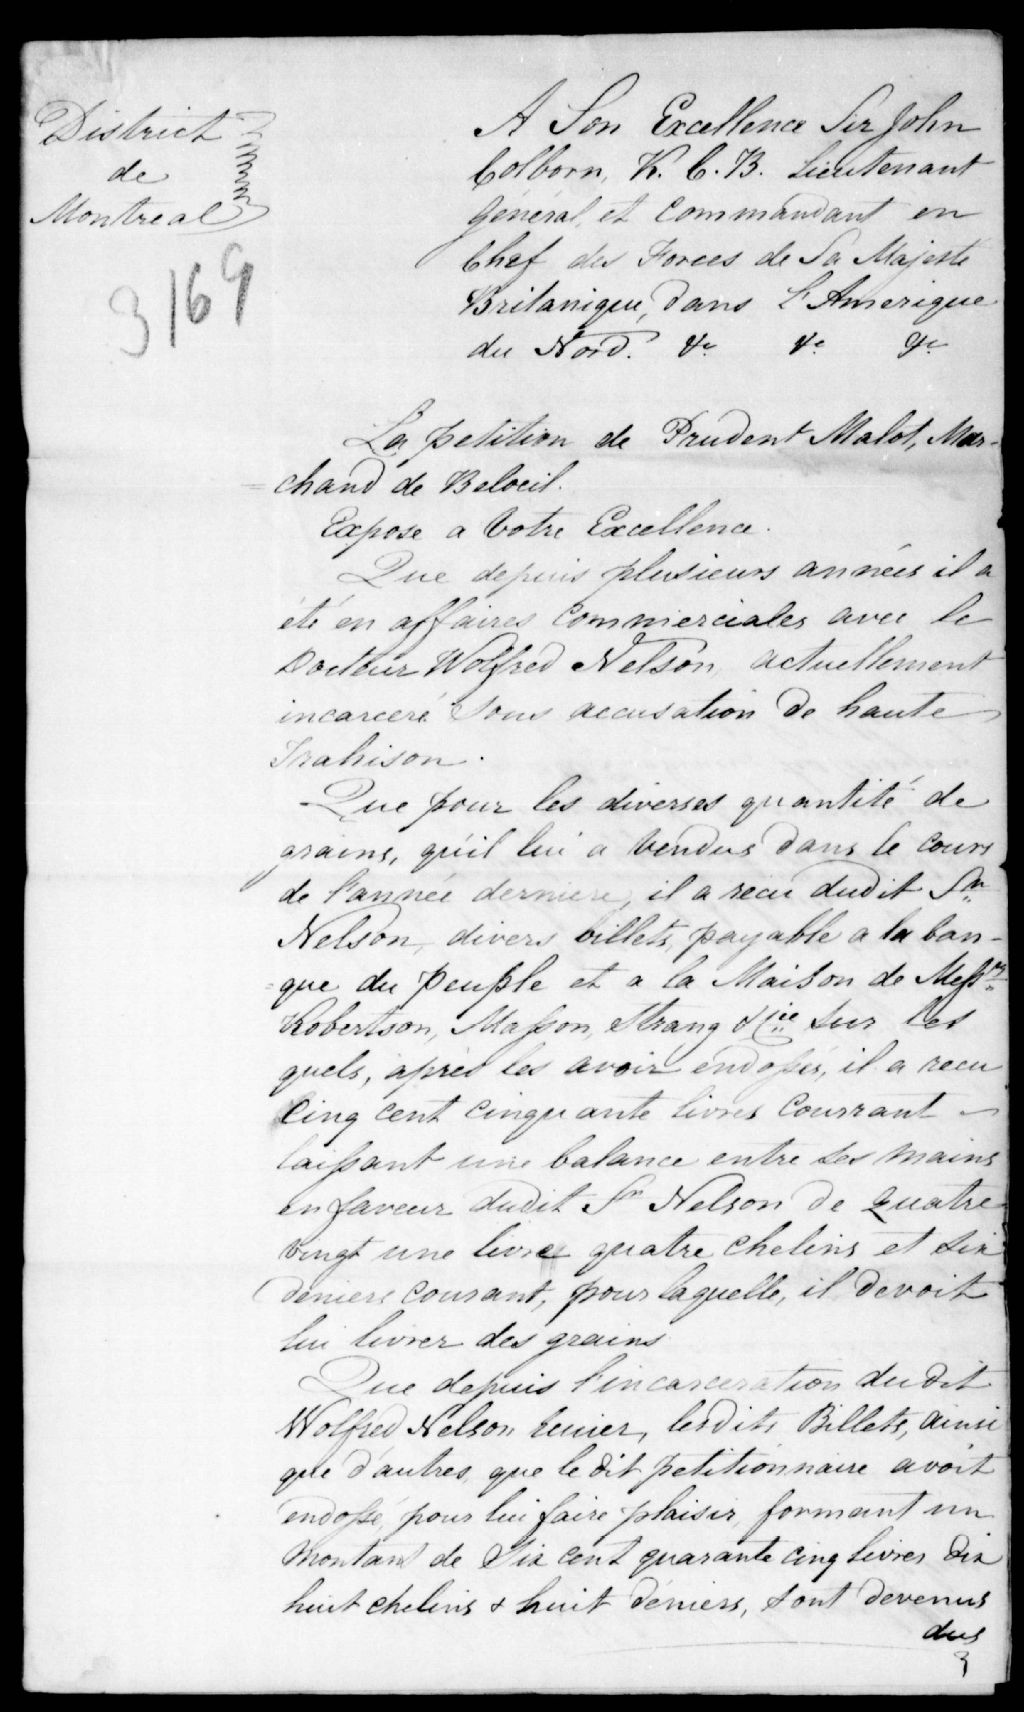 District
de
Montreal
3169
A Son Excellence Sir John
Colborn, K. C. B. Lieutenant
Général, et Commandant en
Chef des Forces de Sa Majesté
Britanique, dans l'Amerique
du Nord. &c &c &c
La petition de Prudent Malot, Mar-
chand de Beloeil.
Expose a Votre Excellence.
Que depuis plusieurs années il a
été en affaires Commerciales avec le
Docteur Wolfred Nelson, actuellement
incarceré sous accusation de haute
Trahison.
Que pour les diverses quantité de
grains, qu'il lui a vendus dans le cours
de l'année derniere, il a recu dudit Sr
Nelson, divers billets, payable a la ban-
que du Peuple et a la Maison de Messrs
Robertson, Masson, Strang & Cie sur les
quels, après les avoir endossés, il a recu
Cinq cent cinquante livres Courrant
laissant une balance entre ses mains
en faveur dudit Sr Nelson de Quatre
vingt une livre quatre chelins et six
deniers courant, pour laquelle, il devoit
lui livrer des grains
Que depuis l'incarceration dudit
Wolfred Nelson lesdits Billets, ainsi
que d'autres, que le dit petitionnaire avoit
endossé, pour lui faire plaisir, formant un
Montant de Six cent quarante cinq livres dix
huit chelins & huit déniers, sont devenus
dus
3